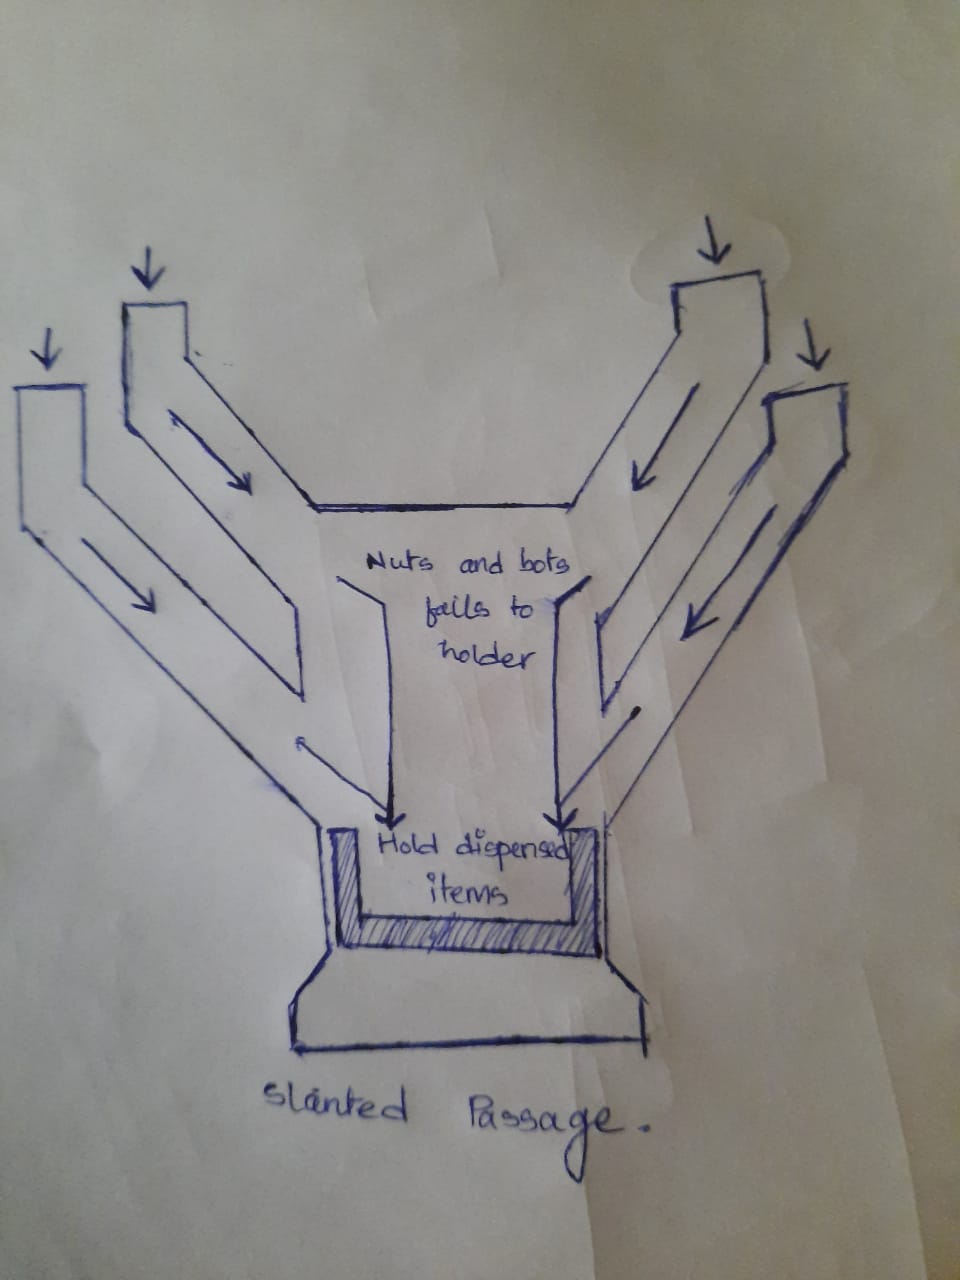 Nuts and bots
falls to
holder
Hold dispensed
items
Slanted Passage.